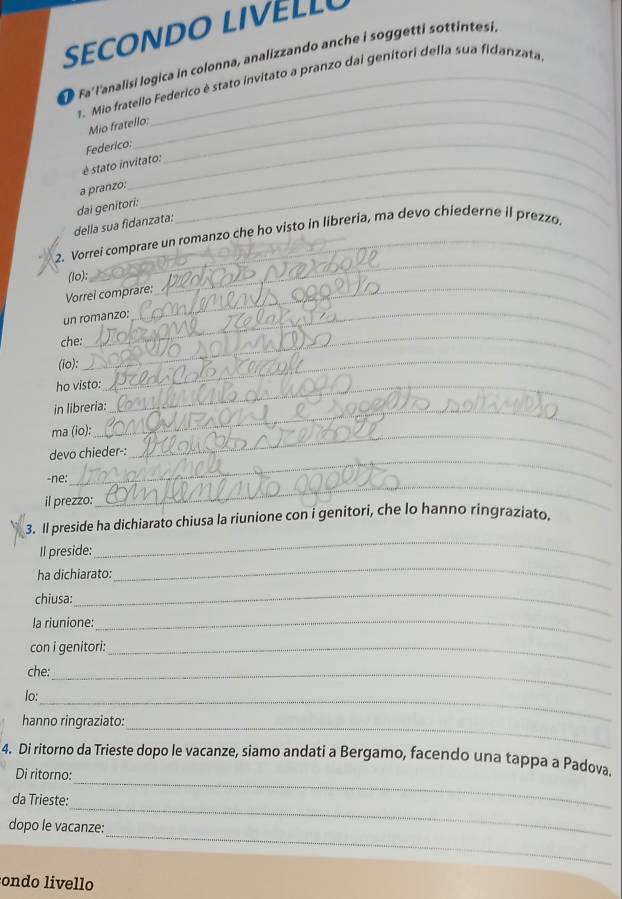 SECONDO LIVELLO
1 Fa' l'analisi logica in colonna, analizzando anche i soggetti sottintesi.
1. Mio fratello Federico è stato invitato a pranzo dai genitori della sua fidanzata.
Mio fratello:
Federico:
è stato invitato:
a pranzo:
dai genitori:
della sua fidanzata:
2. Vorrei comprare un romanzo che ho visto in libreria, ma devo chiederne il prezzo.
(Io): soggetto sottinteso
Vorrei comprare: predicato verbale
un romanzo: complemento oggetto
che: relativo
(io): soggetto sottinteso
ho visto: predicato verbale
in libreria: complemento di luogo
ma (io): congiunzione e soggetto sottinteso
devo chieder-: predicato verbale
-ne:
il prezzo: complemento oggetto
3. Il preside ha dichiarato chiusa la riunione con i genitori, che lo hanno ringraziato.
Il preside:
ha dichiarato:
chiusa:
la riunione:
con i genitori:
che:
lo:
hanno ringraziato:
4. Di ritorno da Trieste dopo le vacanze, siamo andati a Bergamo, facendo una tappa a Padova.
Di ritorno:
da Trieste:
dopo le vacanze:
condo livello